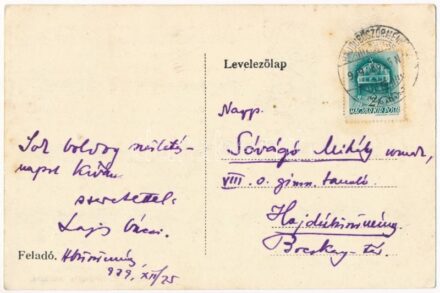 HAJDUBÖSZÖRMÉNY
MAGYAR KIR. POSTA
Levelezőlap
Nagys.
Sóvágó Mihály urnak,
VIII. o. gimn. tanuló
Hajdúböszörmény
Bocskay-tér.
Sok boldog születés-
napot kíván
szeretettel:
Lajos
Feladó. Hböszörmény
939. XII/25